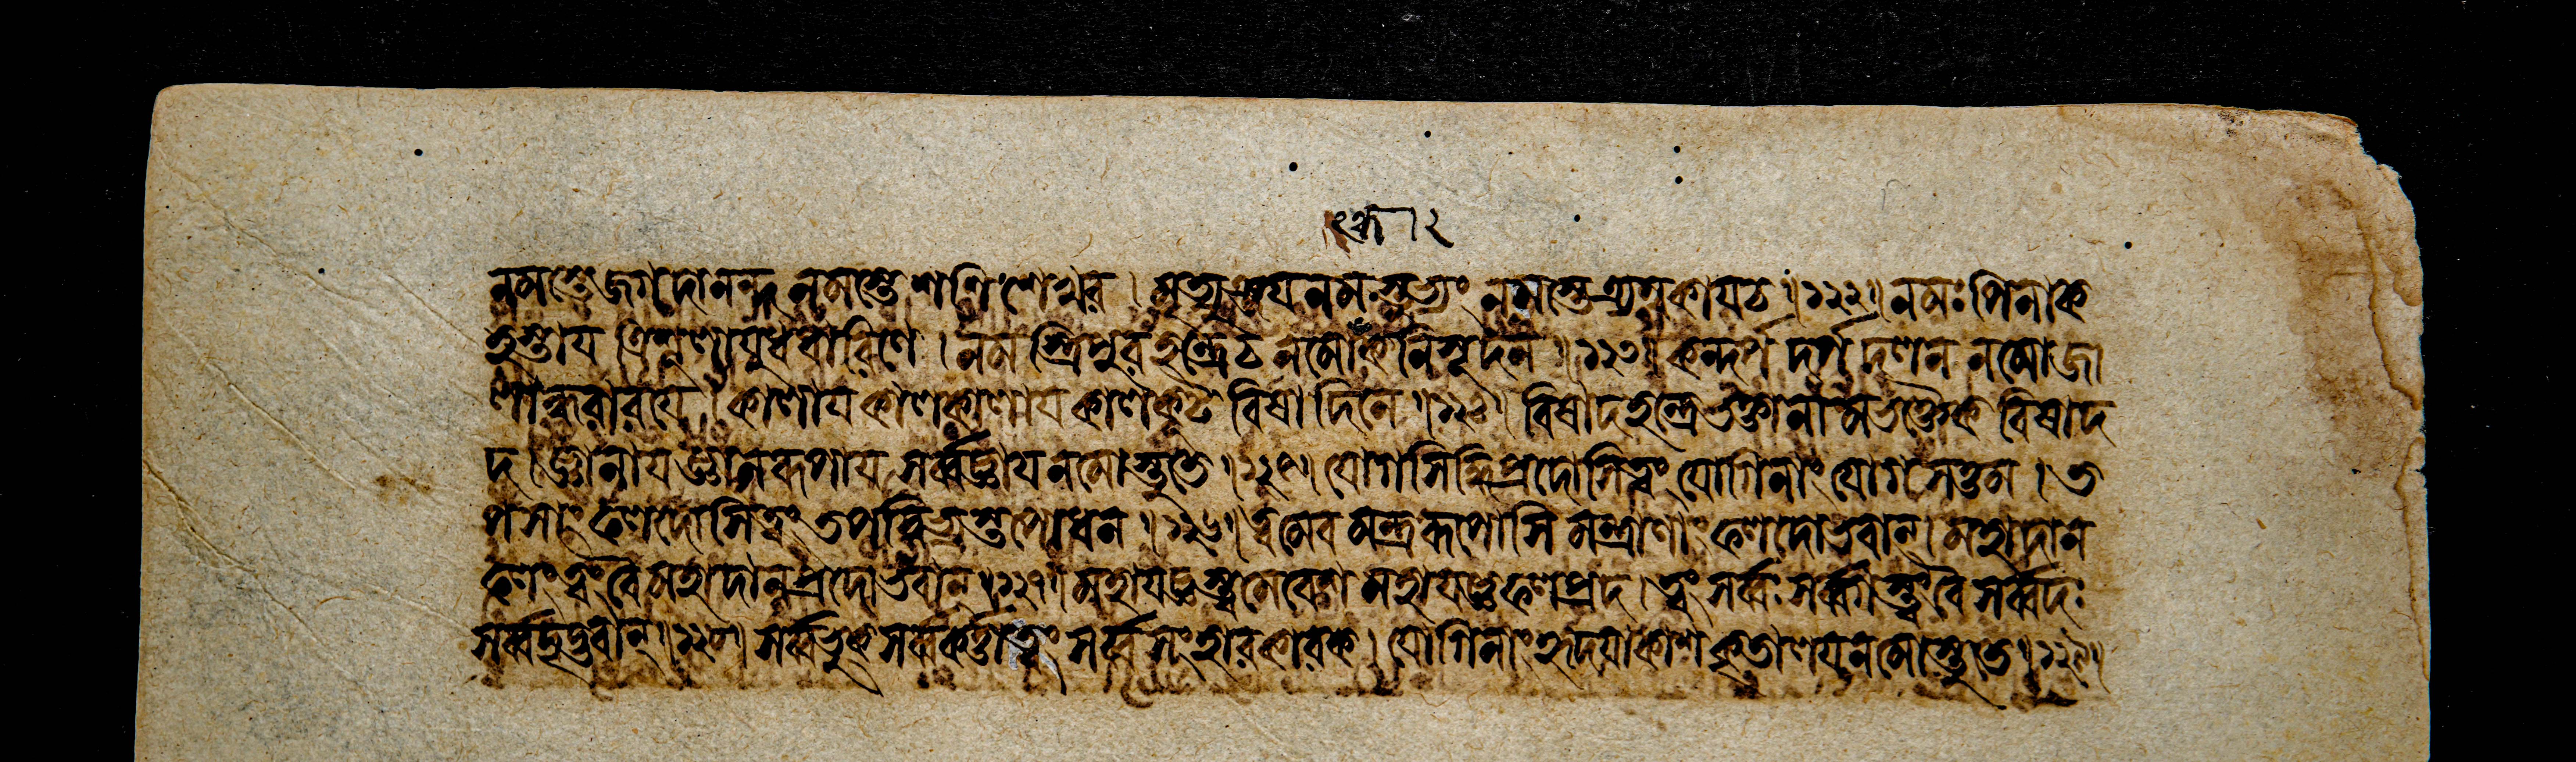 নমস্তে জগদানন্দ নমস্তে শশিশেখর । মৃত্যুঞ্জয় নমস্তুভ্যং নমস্তে ॥ ১২২ ॥ নমঃ পিনাক
হস্তায় ত্রিশূলায়ুধধারিণে । নমস্ত্রিপুরহন্ত্রে চ নমোন্ধকনিসূদন ॥ ১২৩ ॥ কন্দর্প্প দর্প্প দলন নমো জা
লান্ধরারয়ে । কালায় কালকালায় কালকূট বিষাদিনে ॥ ১২৪ ॥ বিষাদহন্ত্রে ভক্তানামভক্তৈক বিষাদ
দ । জ্ঞানায় জ্ঞানরূপায় সর্ব্বজ্ঞায় নমোস্তুতে ॥ ১২৫ ॥ যোগসিদ্ধিপ্রদোসি ত্বং যোগিনাং যোগসত্তম । ত
পসাং ফলদোসি ত্বং তপস্বিভ্যস্তপোধন ॥ ১২৬ ॥ ত্বমেব মন্ত্ররূপোসি মন্ত্রাণাং ফলদো ভবান্ । মহাদান
ফলং ত্বং বৈ মহাদানপ্রদো ভবান্ ॥ ১২৭ ॥ মহাযজ্ঞস্ত্বমেবেশ মহাযজ্ঞফলপ্রদ । ত্বং সর্ব্বঃ সর্ব্বগস্ত্বং বৈ সর্ব্বদঃ
সর্ব্বদৃগ্ভবান্ ॥ ১২৮ ॥ সর্ব্বভুক্ সর্ব্বকর্ত্তা ত্বং সর্ব্বসংহারকারক । যোগিনাং হৃদয়াকাশ কৃতালয় নমোস্তুতে ॥ ১২৯ ॥